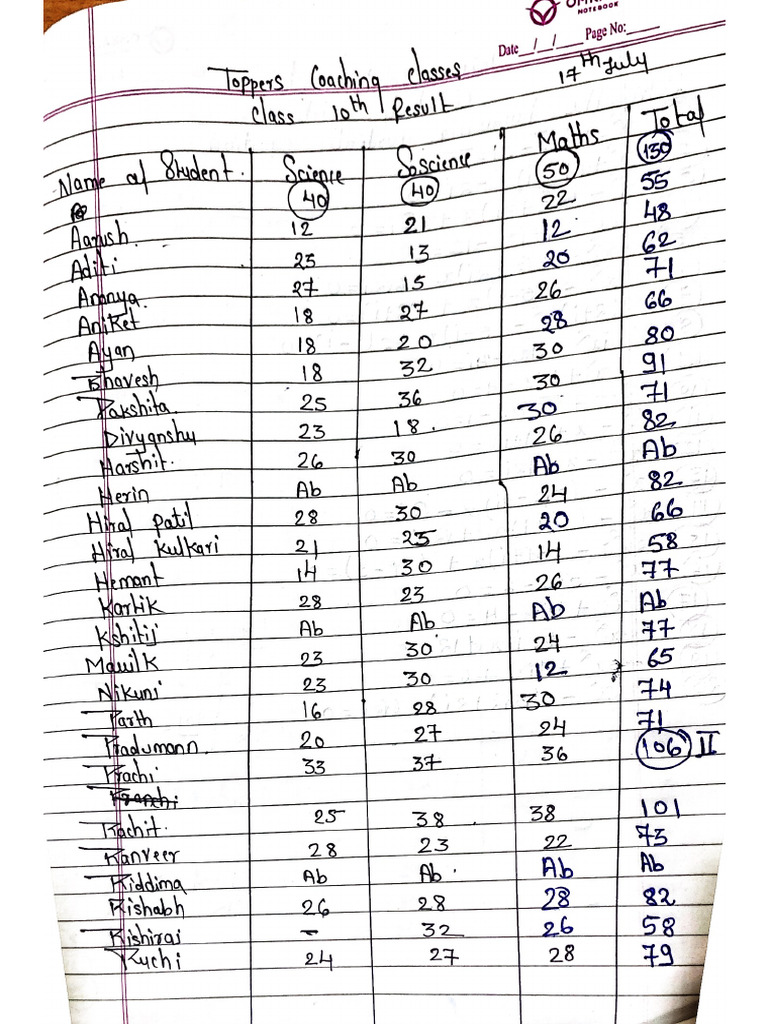 NOTEBOOK
Date __/__/__ Page No:____
Toppers Coaching Classes 17th July
Class 10th Result
Name of Student. Science Soscience Maths Total
40 40 50 130
Aarush 12 21 22 55
Aditi 23 13 12 48
Ananya 27 15 20 62
Aniket 18 27 26 71
Ayan 18 20 28 66
Bhavesh 18 32 30 80
Dakshita 25 36 30 91
Divyanshu 23 18 30 71
Harshit 26 30 26 82
Herin Ab Ab Ab Ab
Hiral Patil 28 30 24 82
Hiral Kulkari 21 25 20 66
Hemant 14 30 14 58
Kartik 28 23 26 77
Kshitij Ab Ab Ab Ab
Maulik 23 30 24 77
Nikunj 23 30 12 65
Parth 16 28 30 74
Pradumann 20 27 24 71
Prachi 33 37 36 106 II
Rachit 25 38 38 101
Ranveer 28 23 22 73
Riddima Ab Ab Ab Ab
Rishabh 26 28 28 82
Rishiraj - 32 26 58
Ruchi 24 27 28 79